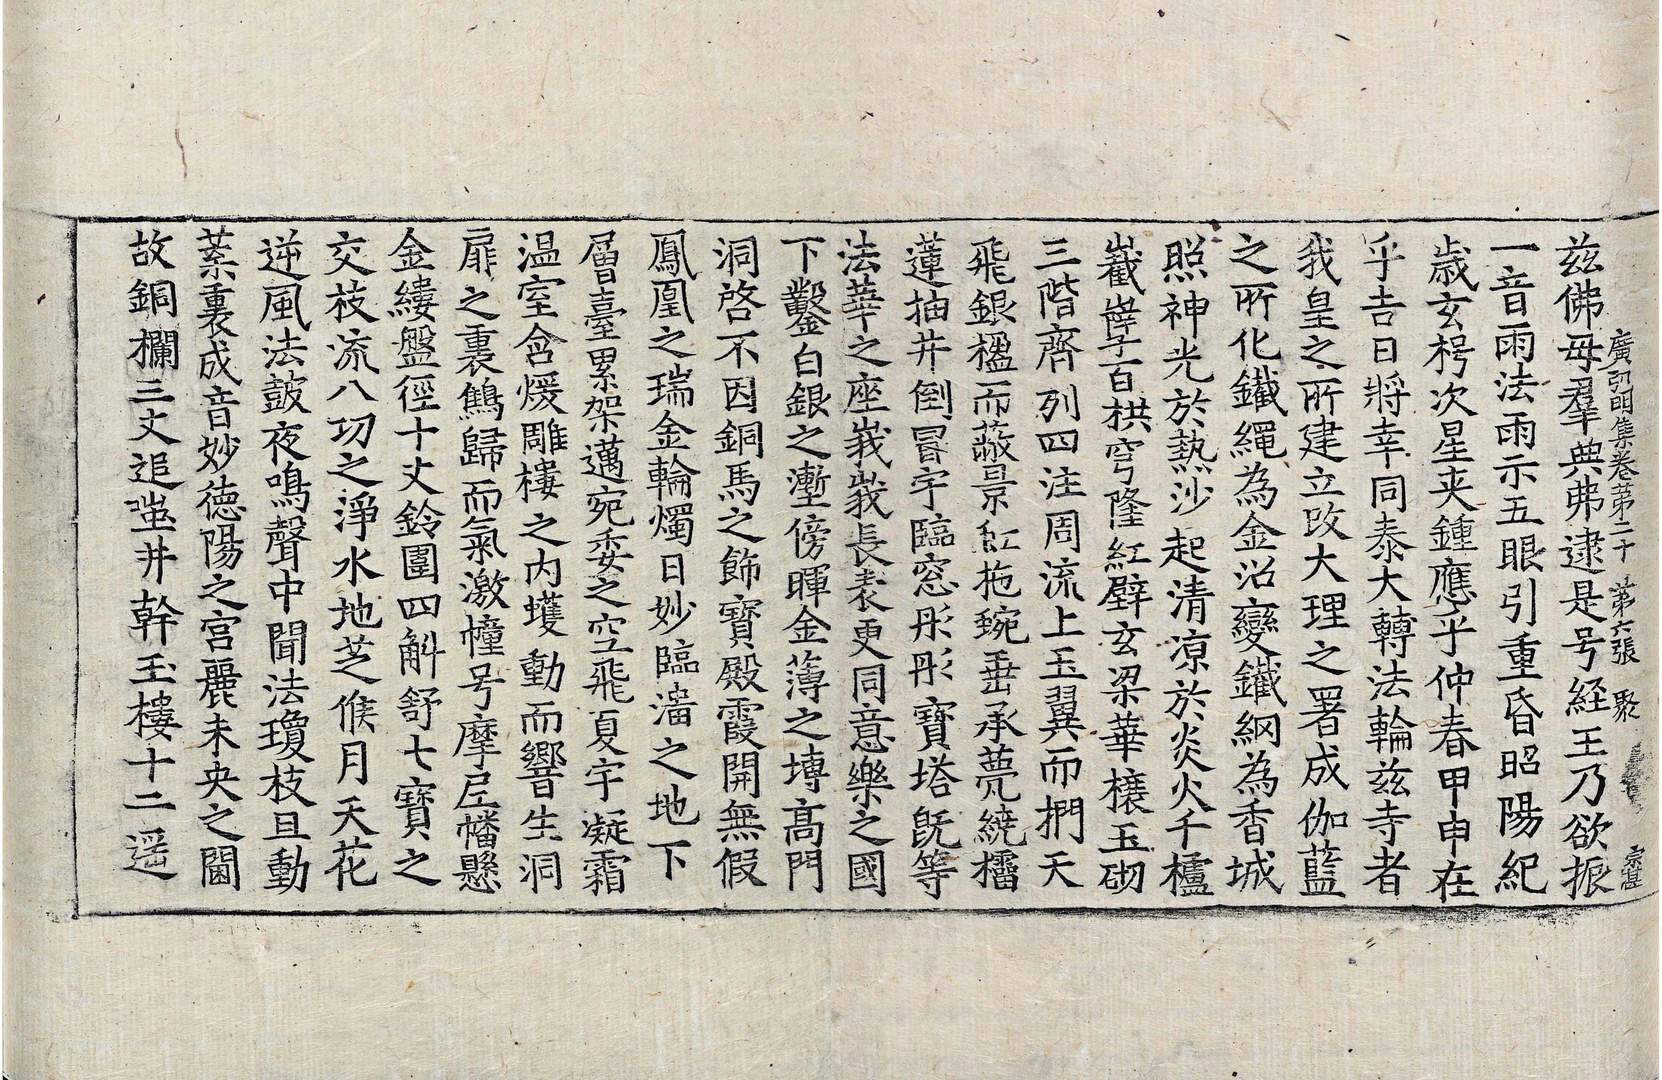 廣弘明集卷第二十 第六張 聚
茲佛母羣典弗逮是号經王乃欲振
一音雨法雨示五眼引重昏昭陽紀
歲玄枵次星夾鍾應乎仲春甲申在
乎吉日將幸同泰大轉法輪茲寺者
我皇之所建立改大理之署成伽藍
之所化鐵繩為金沼變鐵網為香城
照神光於熱沙起清涼於炎火千櫨
巀嶭百栱穹隆紅壁玄梁華榱玉砌
三階齊列四注周流上玉翼而捫天
飛銀楹而蔽景虹拖蜿垂承甍繞檽
蓮抽井倒冒宇臨窓彤彤寶塔旣等
法華之座峩峩長表更同意樂之國
下鑿白銀之壍傍暉金薄之塼高門
洞啓不因銅馬之飾寶殿霞開無假
鳳凰之瑞金輪燭日妙臨淄之地下
層臺累架邁宛委之空飛夏宇凝霜
温室含煖雕樓之内蠖動而響生洞
扉之裏鴙歸而氣激幢号摩尼幡懸
金縷盤徑十丈鈴圍四斛舒七寶之
交枝流八功之淨水地芝候月天花
逆風法鼓夜鳴聲中聞法瓊枝旦動
葉裏成音妙德陽之宮麗未央之闥
故銅欄三丈追嗤井幹玉樓十二遥